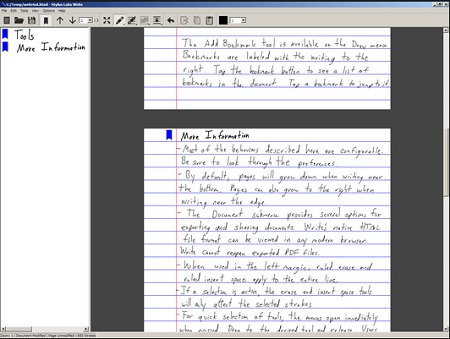 C:/Temp/writetut.html - Stylus Labs Write
File Edit Tools View Help
Tools
More Information
The Add Bookmark tool is available on the Draw menu
Bookmarks are labeled with the writing to the
right. Tap the bookmark button to see a list of
bookmarks in the document. Tap a bookmark to jump to it
More Information
- Most of the behaviors described here are configurable.
Be sure to look through the preferences.
- By default, pages will grow down when writing near
the bottom. Pages can also grow to the right when
writing near the edge.
- The Document submenu provides several options for
exporting and sharing documents. Write's native HTML
file format can be viewed in any modern browser.
Write cannot reopen exported PDF files.
- When used in the left margin, ruled erase and
ruled insert space apply to the entire line.
- If a selection is active, the erase and insert space tools
will only affect the selected strokes
- For quick selection of tools, the menus open immediately
when pressed. Drag to the desired tool and release. Users